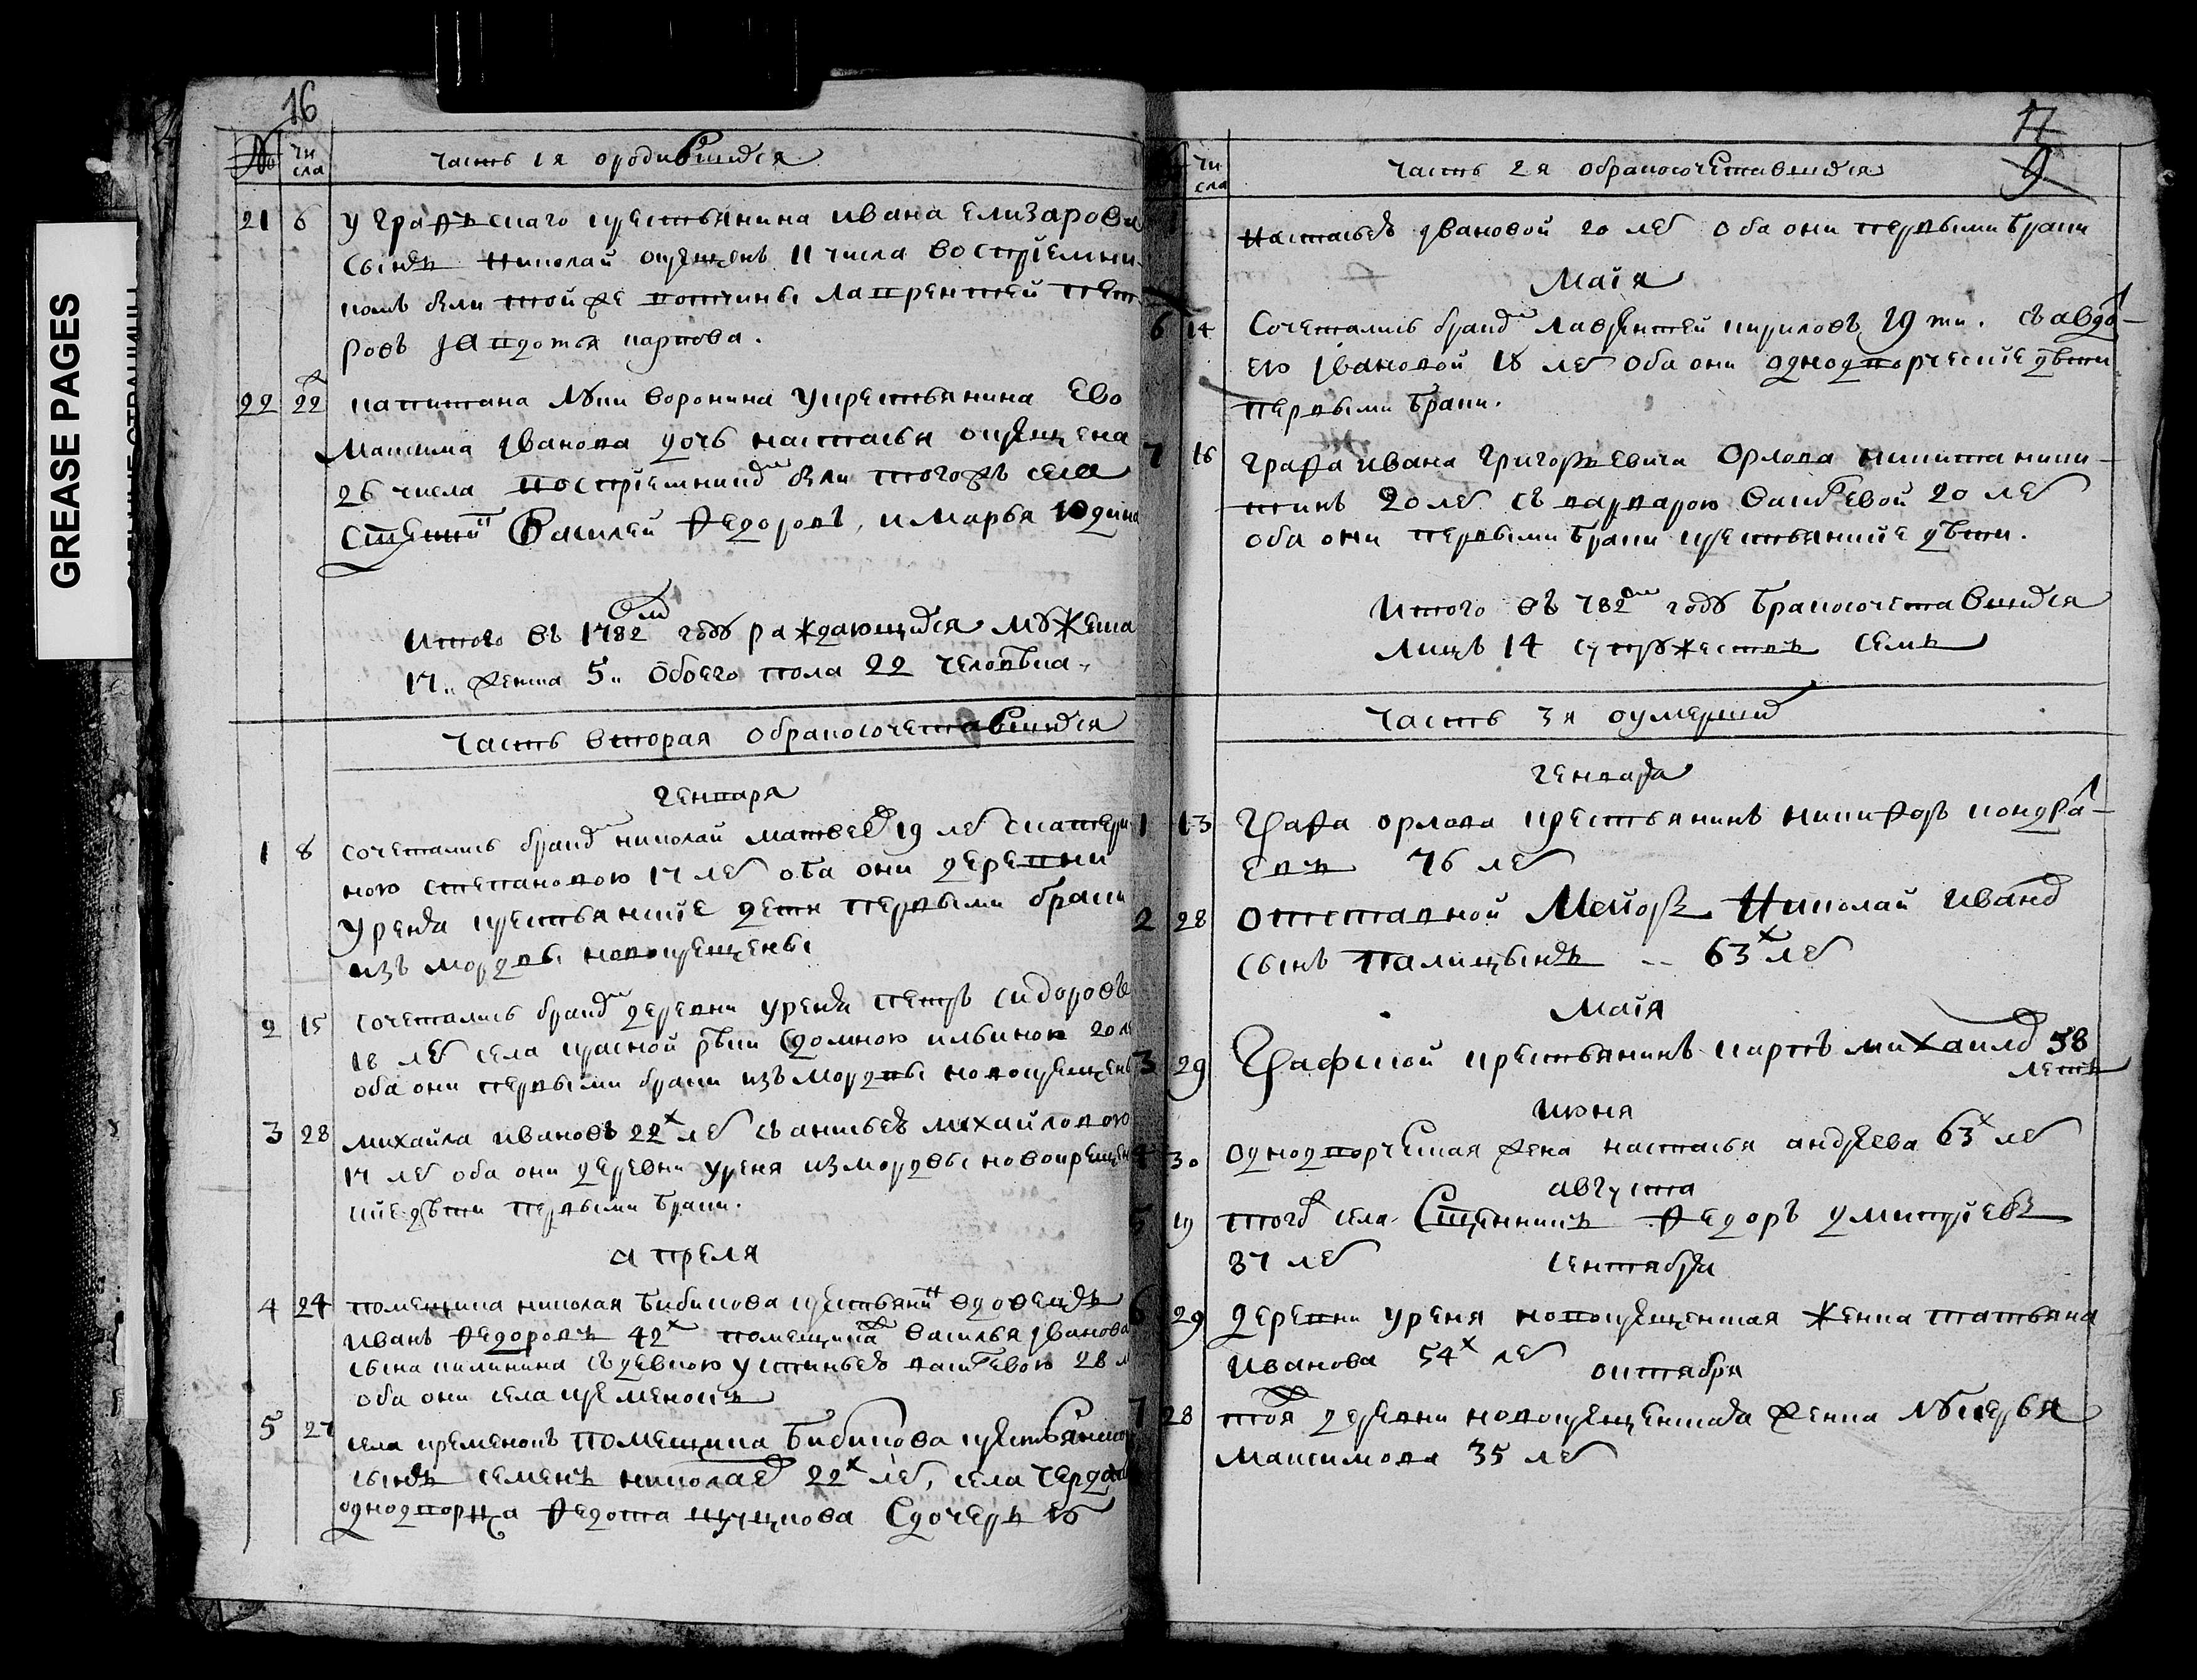 GREASE PAGES
16
№ чи сла часть 1я ородившихся
21 6 у графъскаго крестьянина ивана елизарова
сынъ николай крещенъ 11 числа восприемни
комъ были той же вотчины лаврентей пет
ровъ и авдотья карпова.
22 22 капитана луки воронина у крестьянина ево
максима иванова дочь настасья крещена
26 числа восприемники были тогожъ села
василей федоровъ, и марья юдина
итого въ 1782 году раждающихся мужеска
17 женска 5 обоего пола 22 человека
часть вторая обракосочетавшихся
генваря
1 8 сочетались браком николай матвеев 19 лет скатери
ною степановою 17 лет оба они деревни
уреня крестьянские дети первыми браки
изъ мордвы новокрещены
2 15 сочетались браком деревни уреня петръ сидоровъ
18 лет села красной реки домною ильиною 20 л
оба они первыми браки изъ мордвы новокрещены
3 28 михайла ивановъ 22х лет съ анисьею михайловою
17 лет оба они деревни уреня из мордвы новокрещен
ские дети первыми браки.
апреля
4 24 помещика николая бибикова крестьянин вдовецъ
иванъ федоровъ 42х помещика василья иванова
сына съ девкою устиньею 28 л
оба они села кременокъ
5 27 села кременокъ помещика бибикова крестьянской
сынъ семенъ николаев 22х лет, села
однодворца федота сдочерью
17
9
чи сла часть 2я обракосочетавшихся
настасьею ивановой 20 лет оба они первыми браки
маiя
6 14 сочетались браком лаврентей кириловъ 19 ти. съ авдо-
ею ивановой 18 лет оба они однодворческие дети
первыми браки.
7 16 графа ивана григорьевича орлова никита ники-
тинъ 20 лет съ варварою 20 лет
оба они первыми браки крестьянские дети.
итого въ 782м году бракосочетавшихся
лицъ 14 супружествъ семь
часть 3я оумерших
генваря
1 13 графа орлова крестьянинъ никифоръ кондра-
евъ 76 лет
2 28 отставной меиоръ николай иванов
сынъ палицынъ 63х лет
маiя
3 29 графской крестьянинъ карпъ михаилов 58
летъ
июня
4 30 однодворческая жена настасья андреева 63х лет
августа
5 19 того села федоръ дмитриевъ
37 лет сентября
6 29 деревни уреня новокрещенская женка татьяна
иванова 54х лет октября
7 28 той деревни новокрещенская женка лукерья
максимова 35 лет